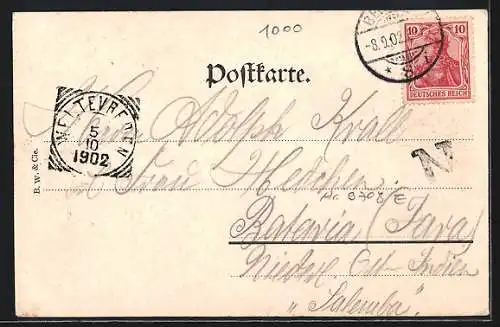 1000
-8.9.02
10 10
DEUTSCHES REICH
Postkarte.
WELTEVREDEN
5
10
1902
N
B. W. & Cie.
Herrn Adolph Krall
Frau Hedchen
Nr. 9708/E
Batavia (Java)
Niederl. Ost-Indien
„Salemba“.